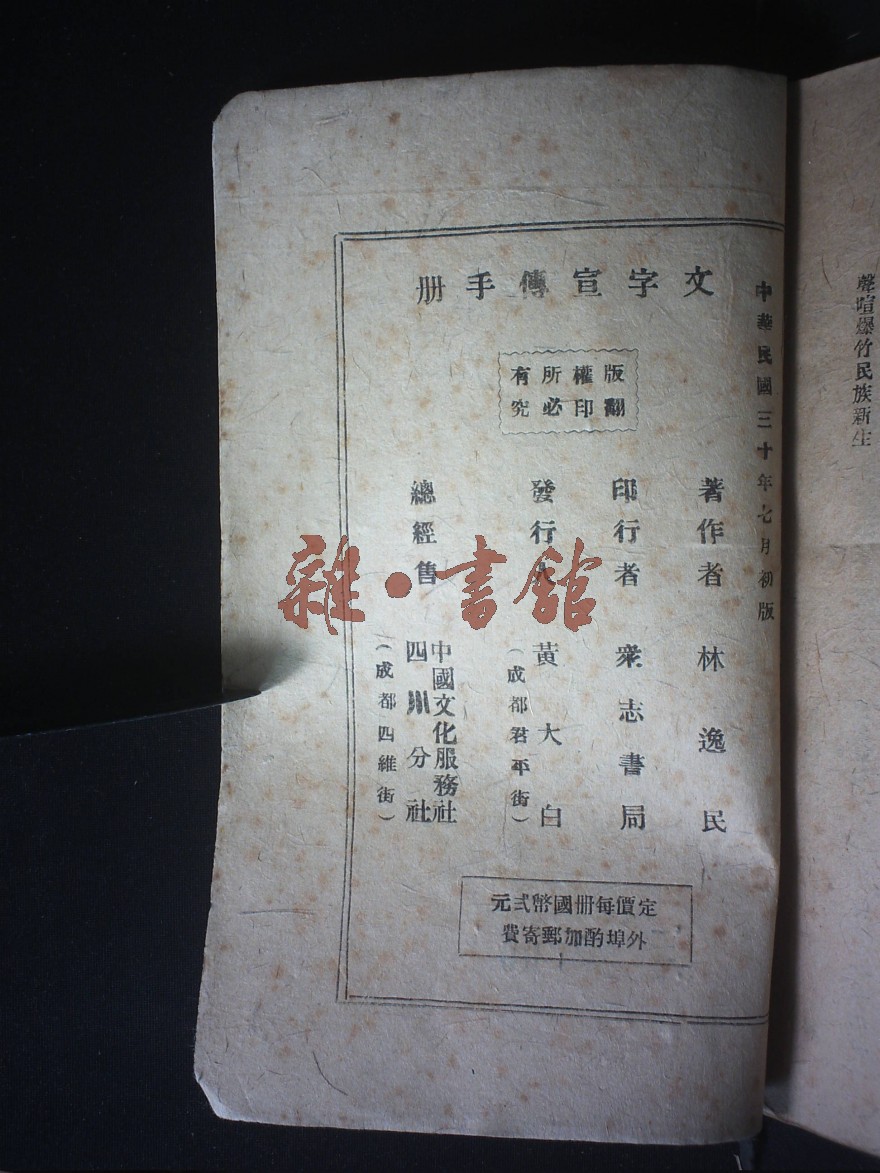 聲喧爆竹民族新生
中華民國三十年七月初版
文字宣傳手册
版權所有
翻印必究
著作者 林逸民
印行者 衆志書局
發行人 黃大白
(成都君平街)
總經售 中國文化服務社
四川分社
(成都四維街)
定價每冊國幣弍元
外埠酌加郵寄費
雜·書館